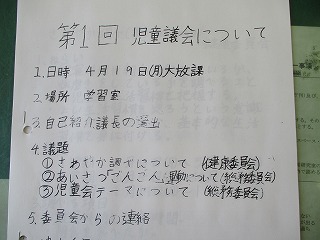 第1回 児童議会について
1.日時 4月19日(月)大放課
2.場所 学習室
3.自己紹介・議長の選出
4.議題
①さわやか調べについて (健康委員会)
②あいさつ「ごんごん」運動について(総務委員会)
③児童会テーマについて (総務委員会)
5.委員会からの連絡